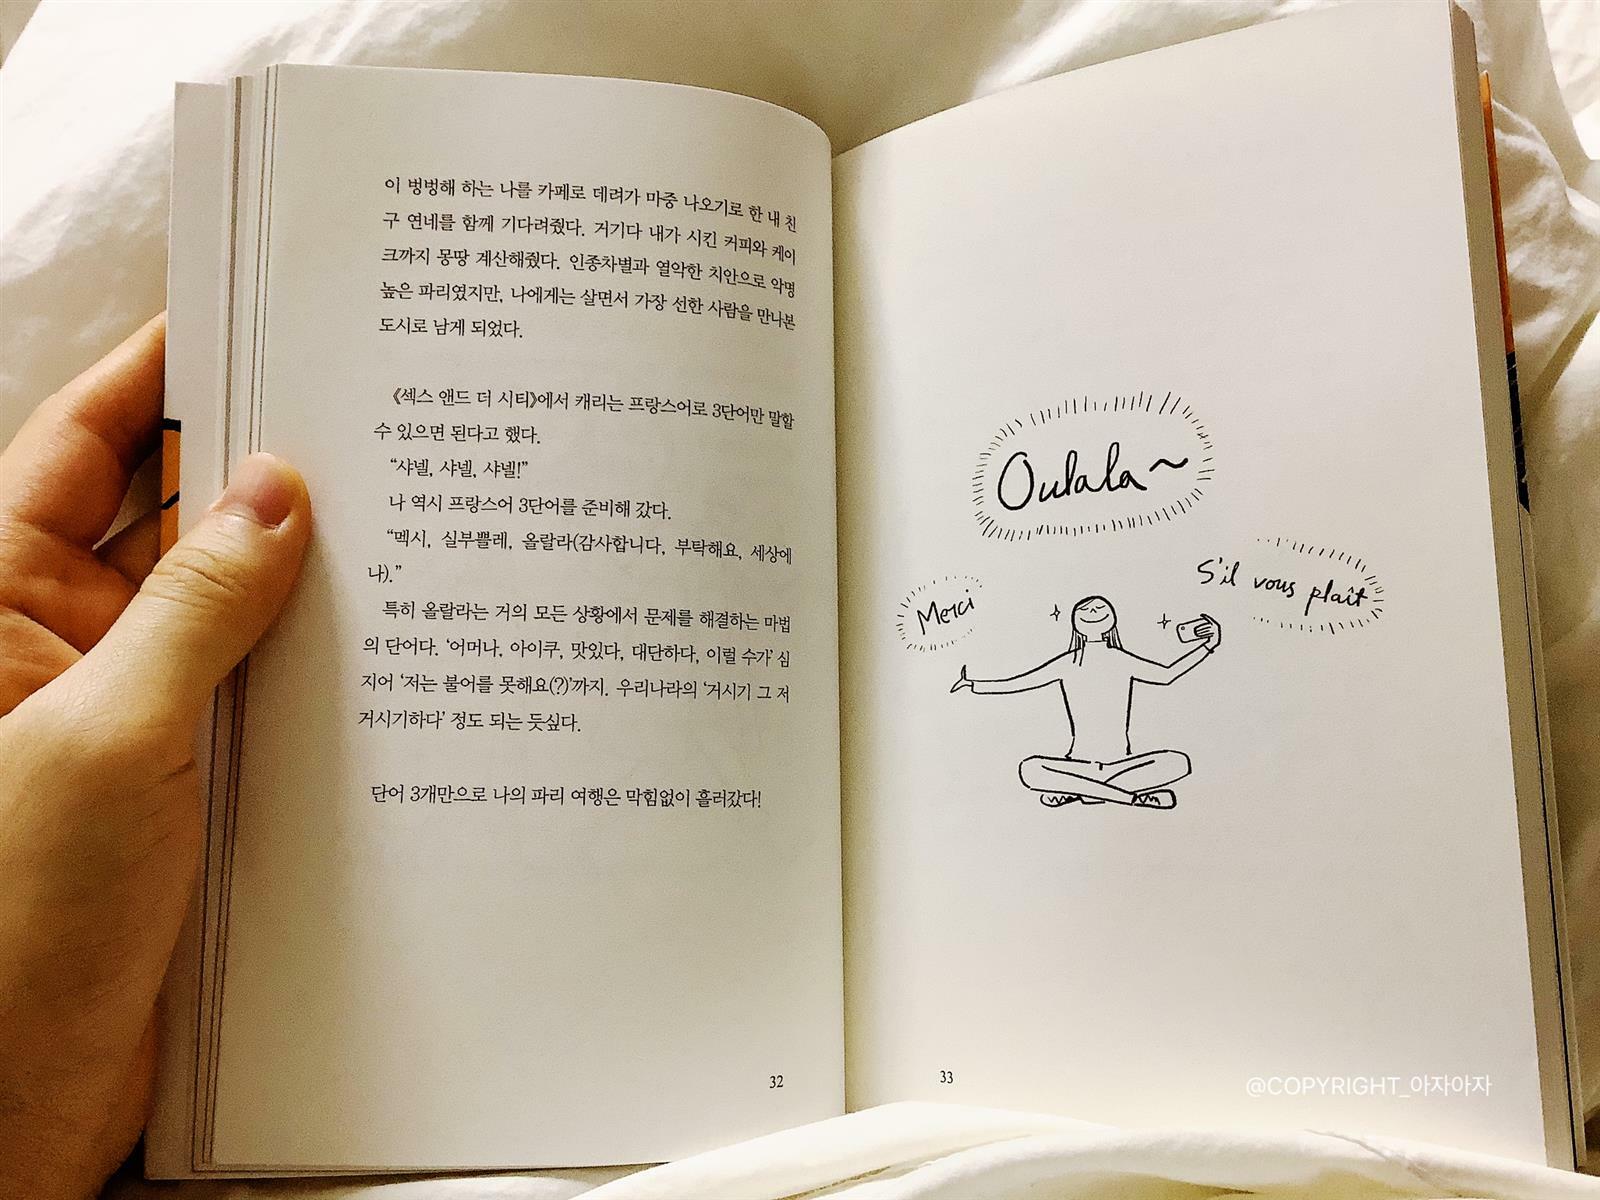 이 벙벙해 하는 나를 카페로 데려가 마중 나오기로 한 내 친
구 연네를 함께 기다려줬다. 거기다 내가 시킨 커피와 케이
크까지 몽땅 계산해줬다. 인종차별과 열악한 치안으로 악명
높은 파리였지만, 나에게는 살면서 가장 선한 사람을 만나본
도시로 남게 되었다.
《섹스 앤드 더 시티》에서 캐리는 프랑스어로 3단어만 말할
수 있으면 된다고 했다.
“샤넬, 샤넬, 샤넬!”
나 역시 프랑스어 3단어를 준비해 갔다.
“멕시, 실부쁠레, 올랄라(감사합니다, 부탁해요, 세상에
나).”
특히 올랄라는 거의 모든 상황에서 문제를 해결하는 마법
의 단어다. ‘어머나, 아이쿠, 맛있다, 대단하다, 이럴 수가’ 심
지어 ‘저는 불어를 못해요(?)’까지. 우리나라의 ‘거시기 그 저
거시기하다’ 정도 되는 듯싶다.
단어 3개만으로 나의 파리 여행은 막힘없이 흘러갔다!
32
Oulala~
S'il vous plaît
Merci
33
@COPYRIGHT_아자아자